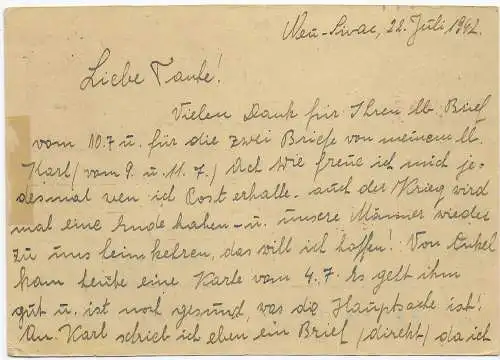 Neu-Sivac, 22. Juli, 1942.
Liebe Tante!
Vielen Dank für Ihren lb. Brief
vom 10.7 u. für die zwei Briefe von meinem lb.
Karl (vom 9. u. 11. 7.) Ach wie freue ich mich je-
desmal wen ich Post erhalte. auch der Krieg wird
mal eine Ende haben - u. unsere Männer wieder
zu uns heimkehren, das will ich hoffen! Von Onkel
kam heute eine Karte vom 4.7. Es geht ihm
gut u. ist noch gesund, was die Hauptsache ist!
An Karl schrieb ich eben ein Brief (direkt) da ich